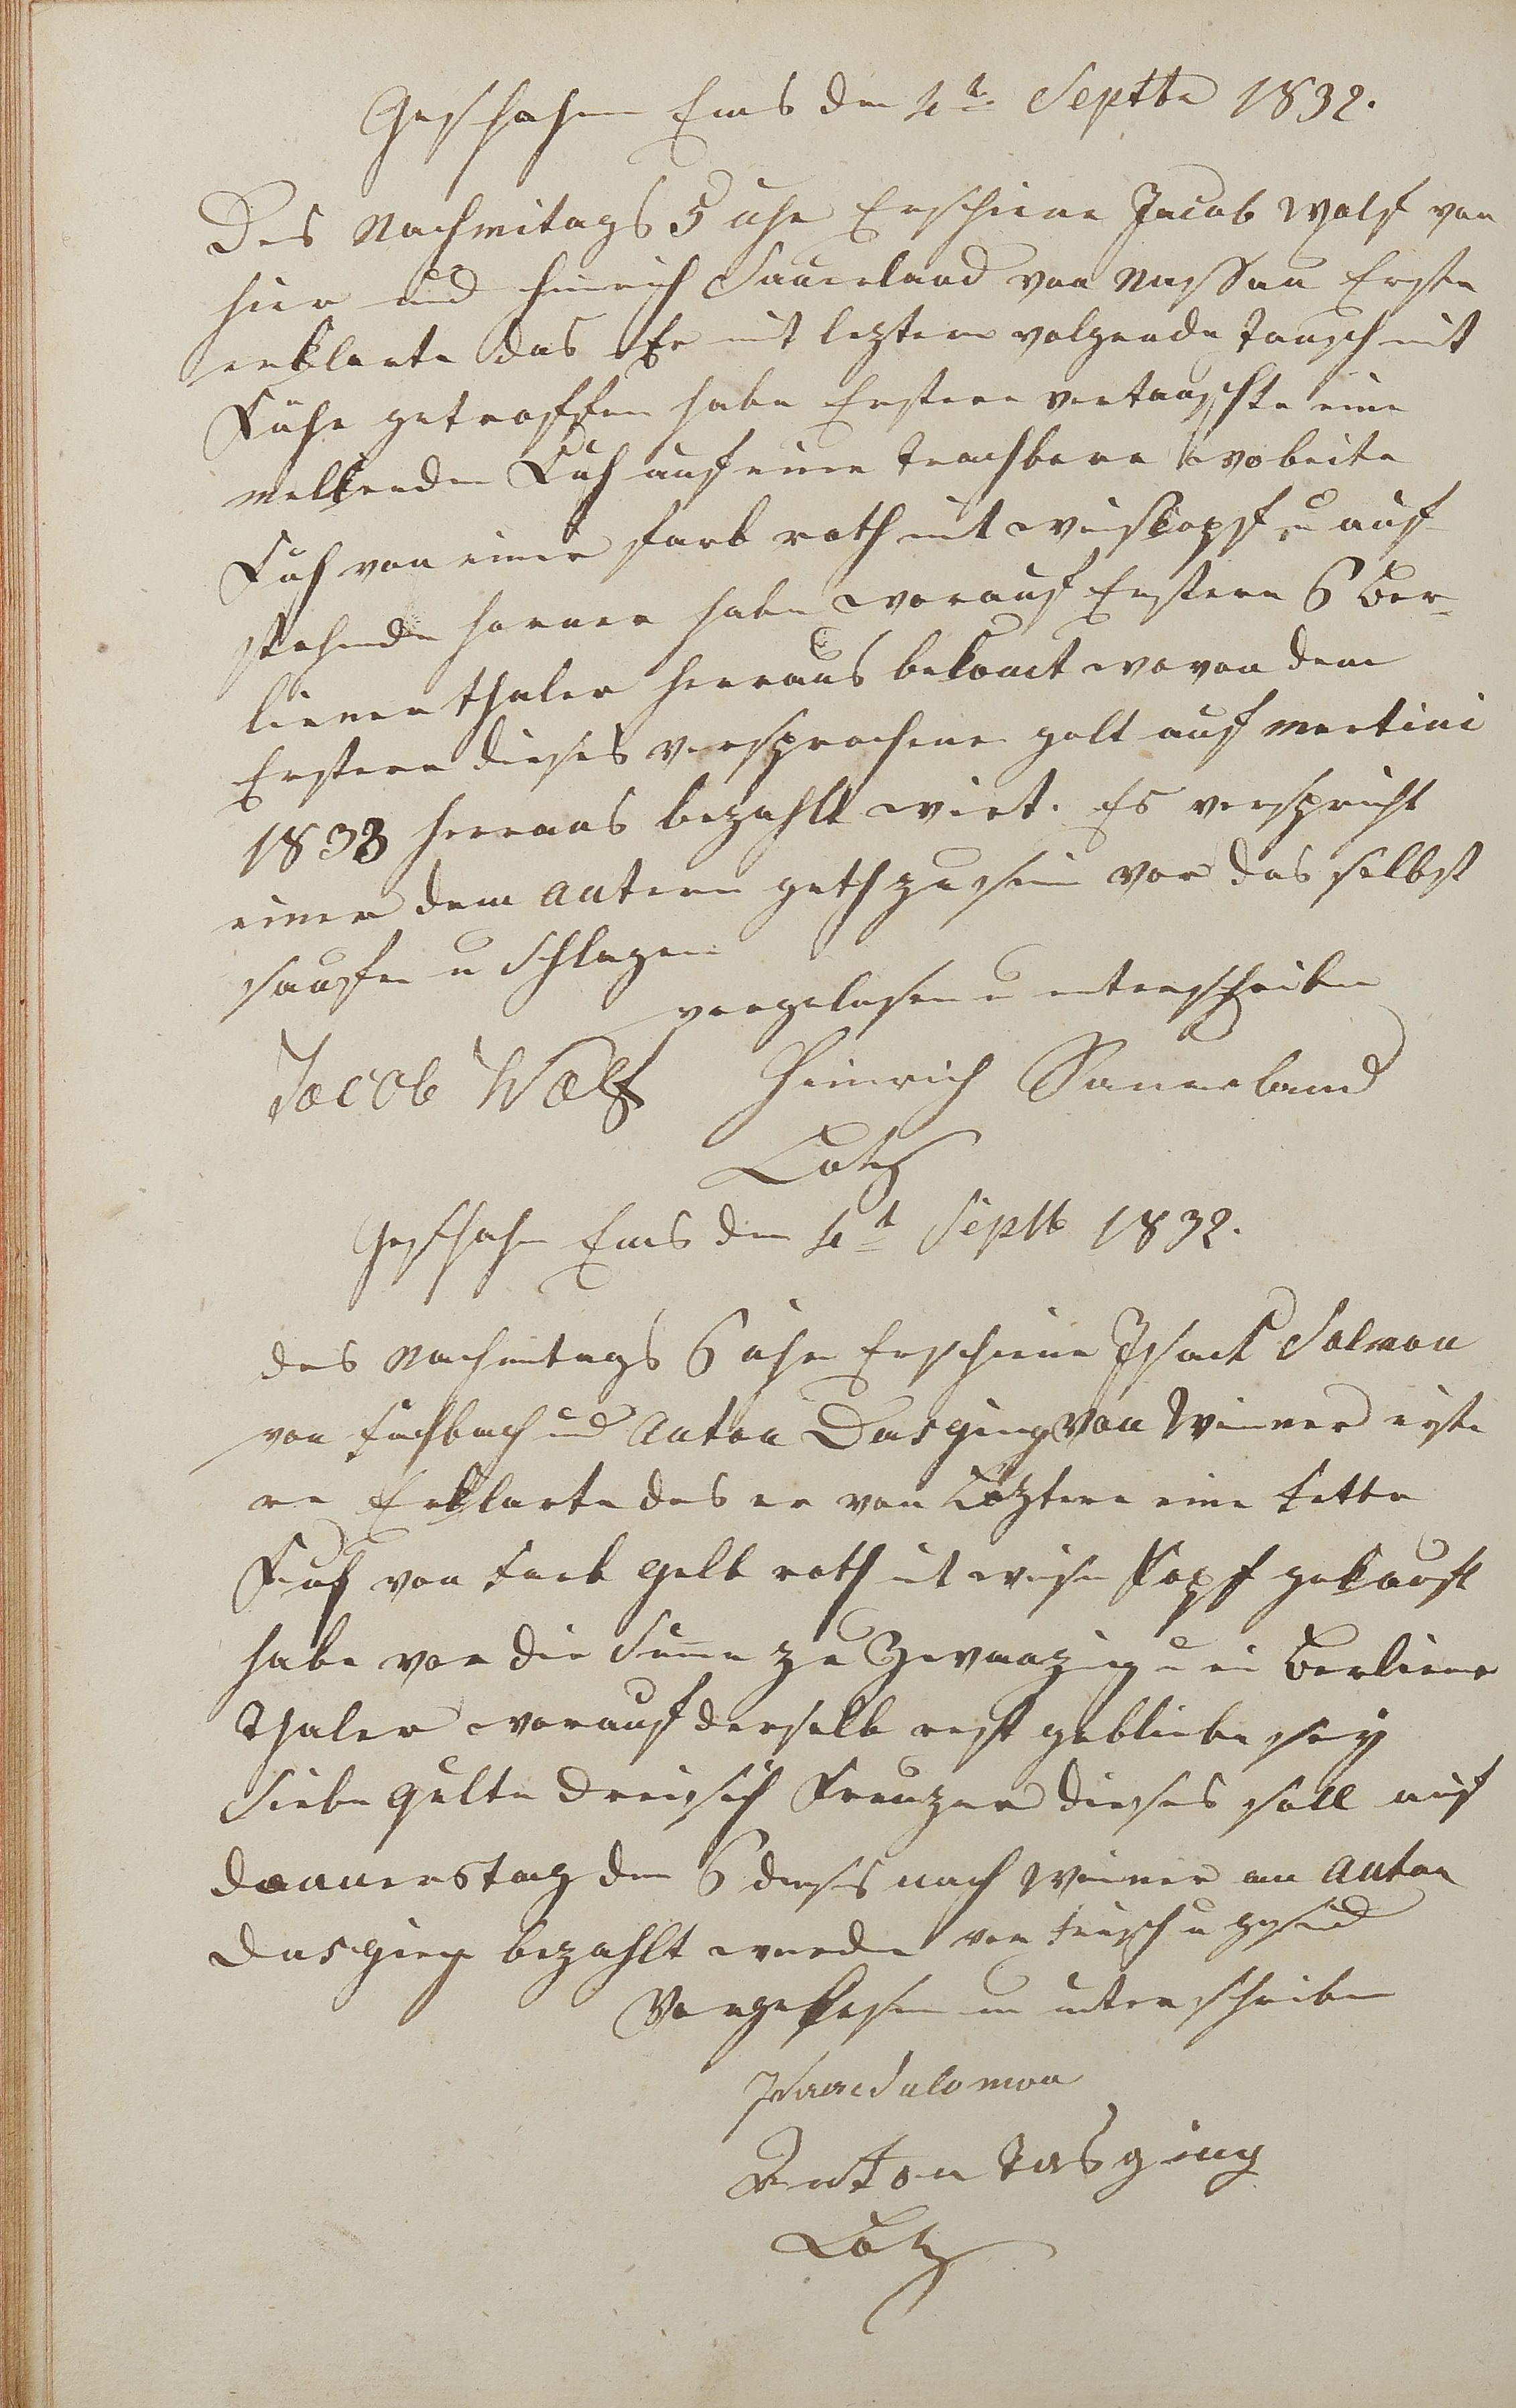 Geschehen Ems den 4t. Septbr 1832.
Des Nachmitags 5 uhr Erschiene Jacob Wolf von
hier und Hinrich Sauerland von Nassau Erster
erklerte das Er mit leztern volgende Tausch mit
Kühe getroffen habe Erstere vertauschte eine
melkenden Kuh auf einen trachbare wo beite
Kuh von einer farb roth mit weiskopf u auf
stehende horner habe worauf Erstere 6 Ber-
liener thaler herraus bekomt wovon dem
Erstern dieses versprochene gelt auf mertini
1833 herraus bezahlt wirt. Es verspricht
einer dem antern guth zu sein vor das selbst
saufen u Schlagen
vorgelesen u unterschrieben
Jacob Wolf Heinrich Sauerland
Lotz
Geschehen Ems den 4t Septb 1832.
des Nachmitags 6 uhr Erschiene Isack Salmon
von Fachbach und Anton Dasging von Winner erste
re Erklarte das er von Leztern eine fette
Kuh von Farb gelb roth mit weisen Kopf gekauft
habe vor die Summe zu Zwanzig u ein Berliener
Thaler worauf derselb rest gebliebe sey
Siebe gulte dreisich Kreuzer dieses soll auf
donnerstag den 6 dieses nach Winner an Anton
Dasging bezahlt werde vor frisch u gesund
Vorgelesen un unterschrieben
Isaac Salomon
Anton Dasging
Lotz